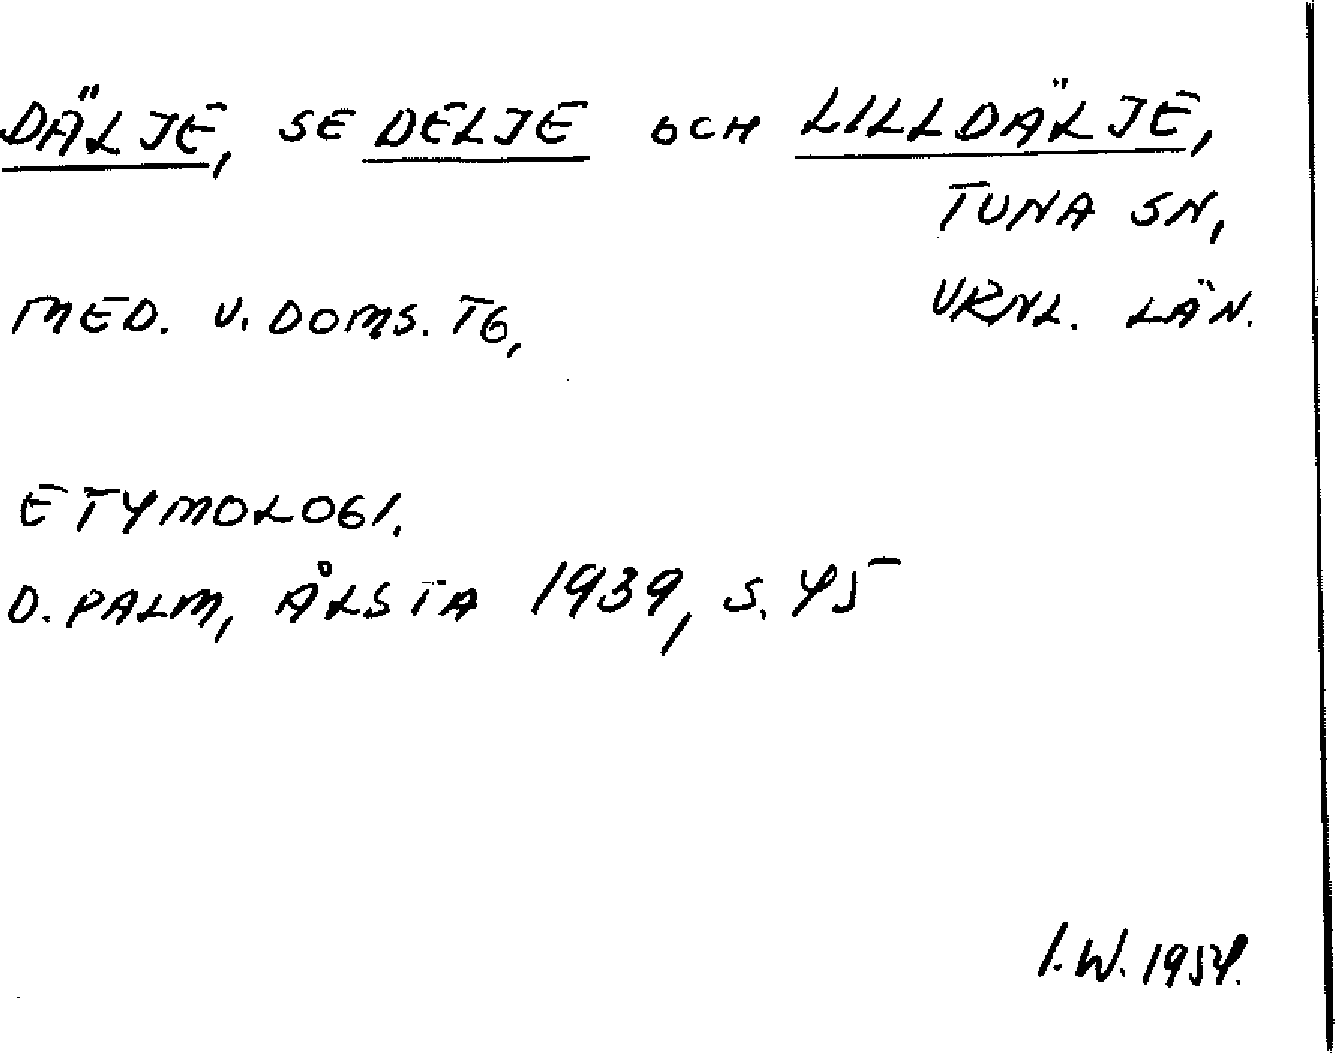 DÄLJE, SE DELJE OCH LILLDÄLJE,
TUNA SN,
MED. V. DOMS. TG, VRNL. LÄN.
ETYMOLOGI.
D. PALM, ÅLSTA 1939, S. 45
I. W. 1954.